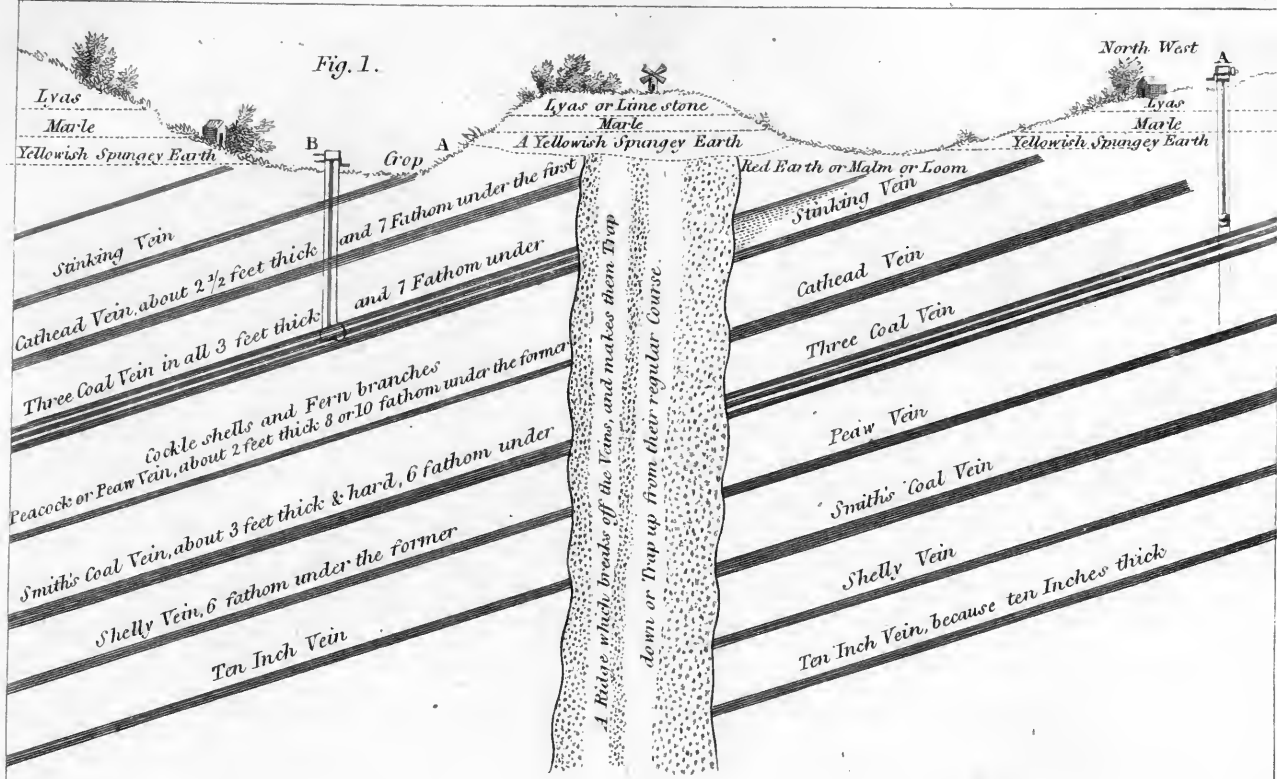 Fig. 1.
North West
A
Lyas
Marle
Yellowish Spungey Earth
B
Crop
A
Lyas or Lime stone
Marle
A Yellowish Spungey Earth
Lyas
Marle
Yellowish Spungey Earth
Red Earth or Malm or Loom
Stinking Vein
Cathead Vein, about 2 1/2 feet thick and 7 Fathom under the first
Three Coal Vein in all 3 feet thick and 7 Fathom under
Cockle shells and Fern branches
Peacock or Peaw Vein, about 2 feet thick 8 or 10 fathom under the former
Smith's Coal Vein, about 3 feet thick & hard, 6 fathom under
Shelly Vein, 6 fathom under the former
Ten Inch Vein
A Ridge which breaks off the Vans, and makes them Trap
down or Trap up from their regular Course.
Stinking Vein
Cathead Vein
Three Coal Vein
Peaw Vein
Smith's Coal Vein
Shelly Vein
Ten Inch Vein, because ten Inches thick